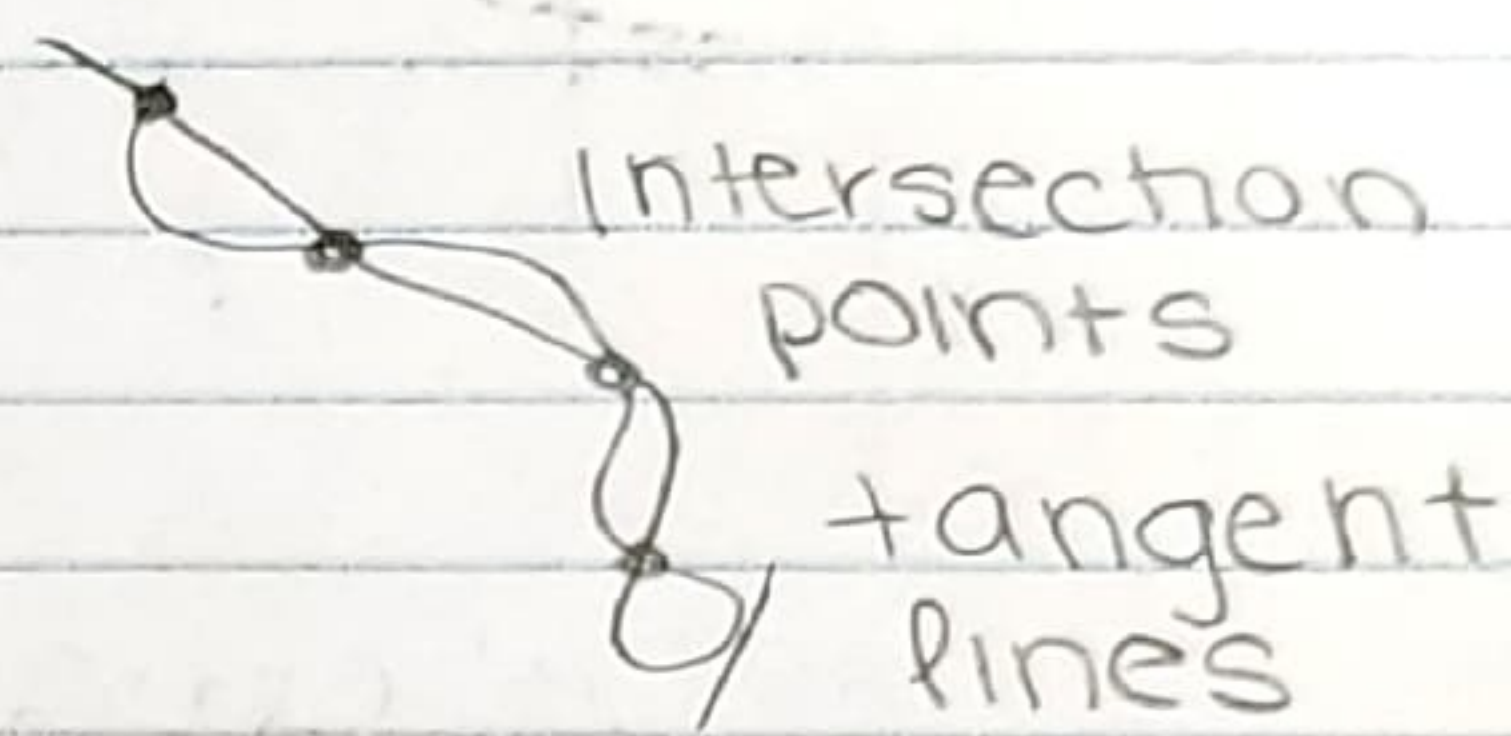 Intersection
points
tangent
lines